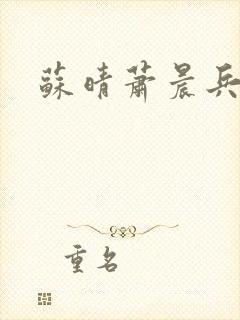 蘇晴蕭晨兵
重名